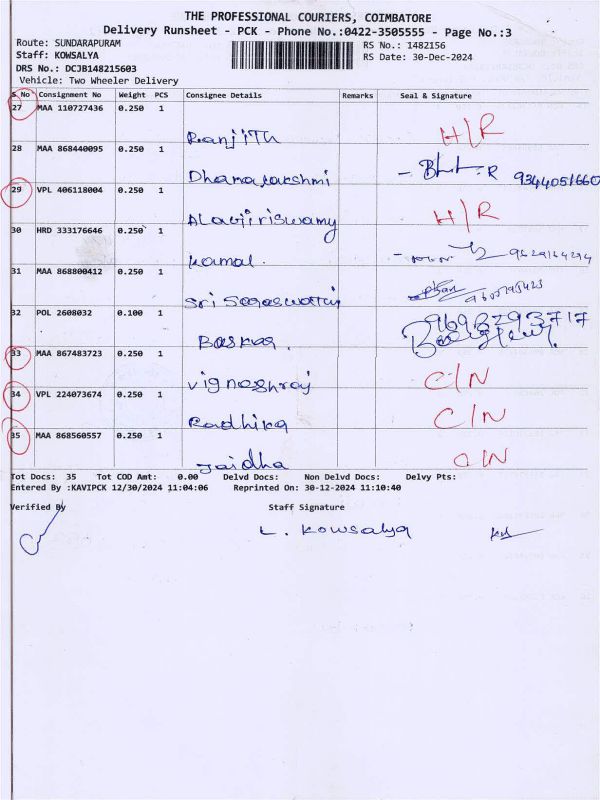 THE PROFESSIONAL COURIERS, COIMBATORE
Delivery Runsheet - PCK - Phone No.:0422-3505555 - Page No.:3
Route: SUNDARAPURAM
RS No.: 1482156
Staff: KOWSALYA
RS Date: 30-Dec-2024
DRS No.: DCJB148215603
Vehicle: Two Wheeler Delivery
S No Consignment No Weight PCS Consignee Details Remarks Seal & Signature
27 MAA 110727436 0.250 1
Ranjith H/R
28 MAA 868440095 0.250 1
Dhanalakshmi 9344051660
29 VPL 406118004 0.250 1
Alagiriswamy H/R
30 HRD 333176646 0.250 1
Kamal. 9629164294
31 MAA 868800412 0.250 1
Sri Saraswathi
32 POL 2608032 0.100 1
Baskar.
33 MAA 867483723 0.250 1
Vigneshraj C/N
34 VPL 224073674 0.250 1
Radhika C/N
35 MAA 868560557 0.250 1
Jaidha C/N
Tot Docs: 35 Tot COD Amt: 0.00 Delvd Docs: Non Delvd Docs: Delvy Pts:
Entered By :KAVIPCK 12/30/2024 11:04:06 Reprinted On: 30-12-2024 11:10:40
Verified By Staff Signature
L. Kowsalya